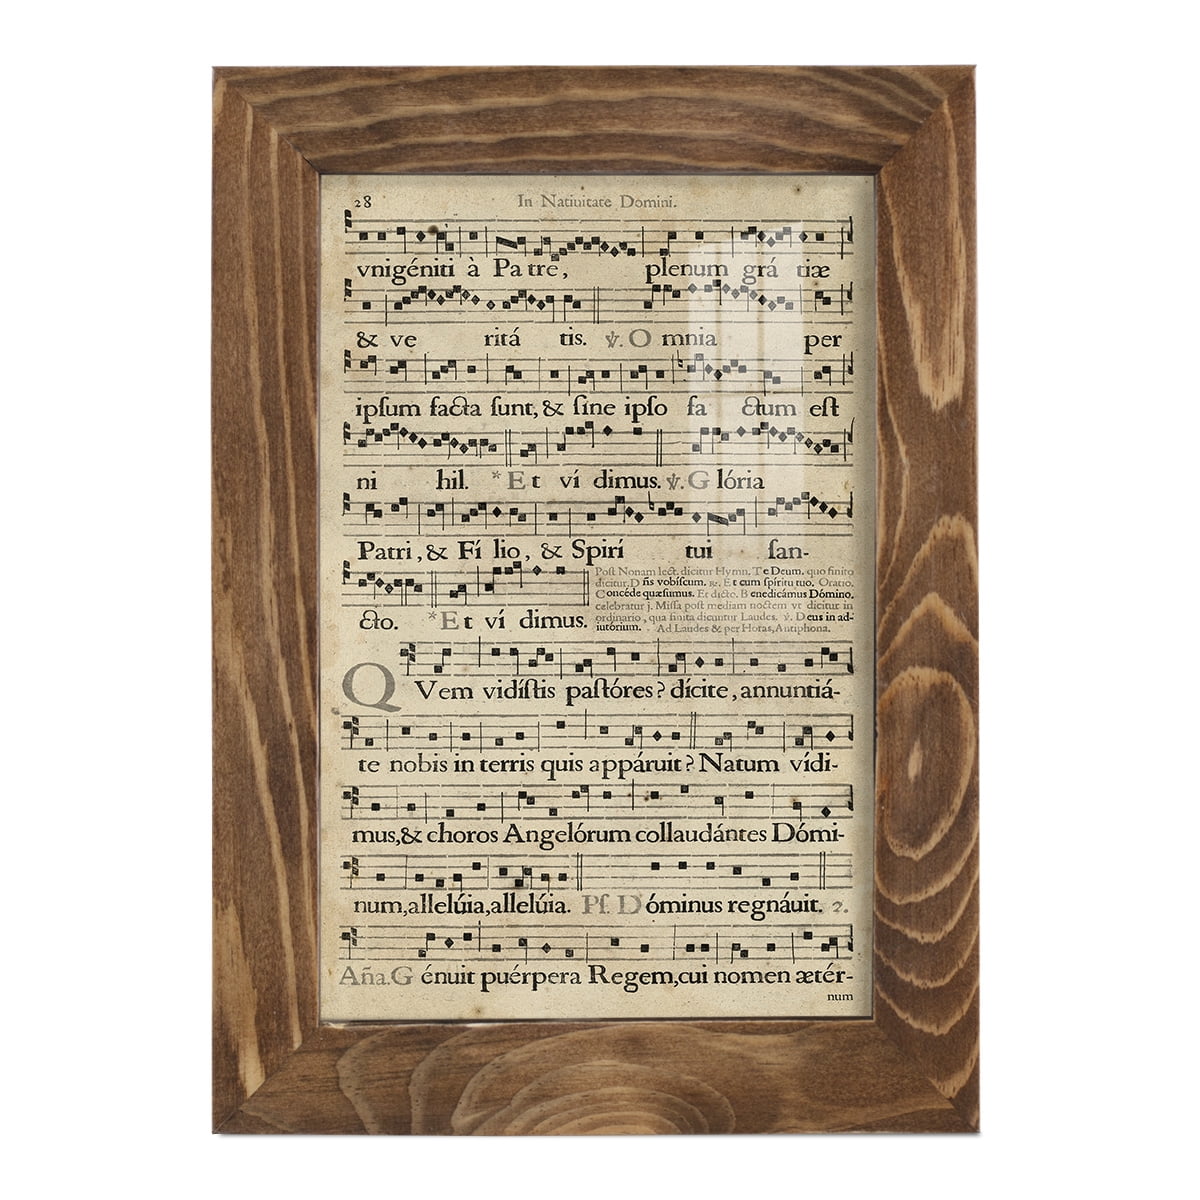 28 In Natiuitate Domini.
vnigéniti à Pa tre, plenum grá tiæ
& ve ritá tis. ℣. O mnia per
ipſum facta ſunt, & ſine ipſo fa ctum eſt
ni hil. *Et ví dimus. ℣. G lória
Patri, & Fí lio, & Spirí tui ſan-
cto. *Et ví dimus.
Poſt Nonam lect. dicitur Hymn. Te Deum. quo finito
dicitur, D ñs vobíſcum. ℞. Et cum ſpíritu tuo. Oratio.
Concéde quæſumus. Et dicto. B enedicámus Dómino.
celebratur j. Miſſa poſt mediam noctem vt dicitur in
ordinario, qua finita dicuntur Laudes. ℣. D eus in ad-
iutórium. Ad Laudes & per Horas, Antiphona.
QVem vidíſtis paſtóres? dícite, annuntiá-
te nobis in terris quis appáruit? Natum vídi-
mus, & choros Angelórum collaudántes Dómi-
num, allelúia, allelúia. Pſ. Dóminus regnáuit. 2.
Aña. G énuit puérpera Regem, cui nomen ætér-
num